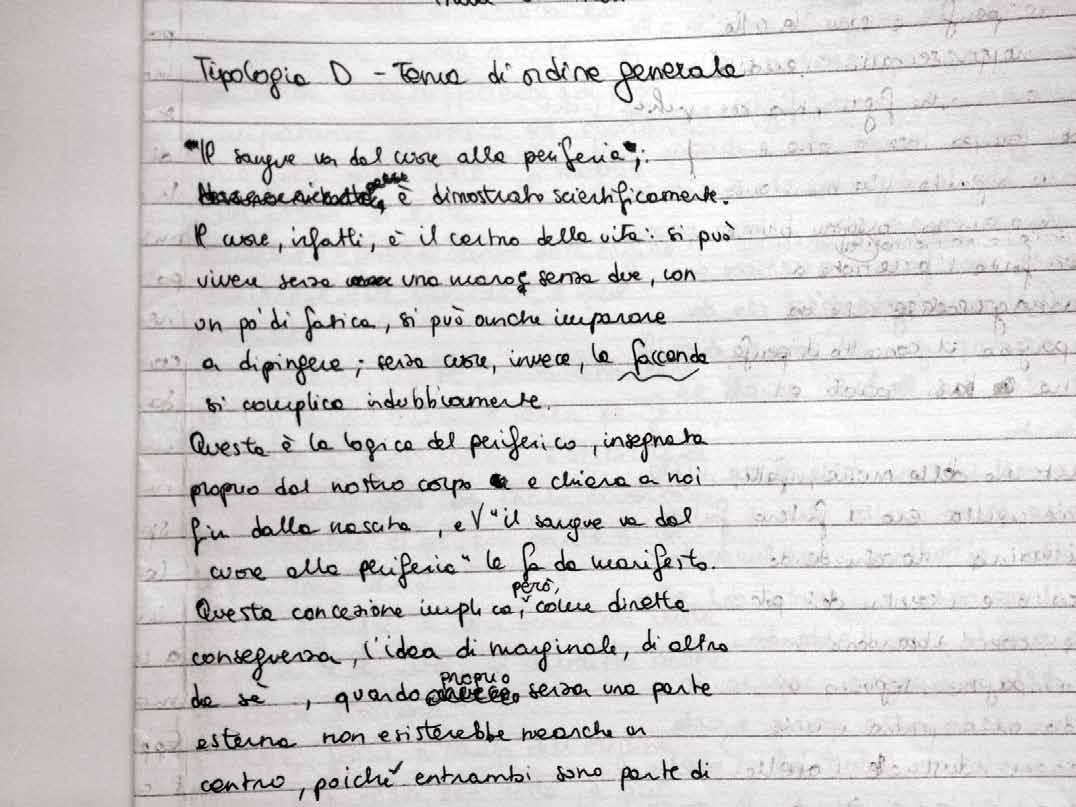 Tipologia D - Tema di ordine generale
"Il sangue va dal cuore alla periferia";:
è dimostrato scientificamente.
Il cuore, infatti, è il centro della vita: si può
vivere senza una mano, senza due, con
un po' di fatica, si può anche imparare
a dipingere; senza cuore, invece, la faccenda
si complica indubbiamente.
Questa è la logica del periferico, insegnata
proprio dal nostro corpo e chiara a noi
fin dalla nascita, e "il sangue va dal
cuore alla periferia" le fa da manifesto.
Questa concezione implica, però, come diretta
conseguenza, l'idea di marginale, di altro
da sè, quando proprio senza una parte
esterna non esisterebbe neanche un
centro, poiché entrambi sono parte di